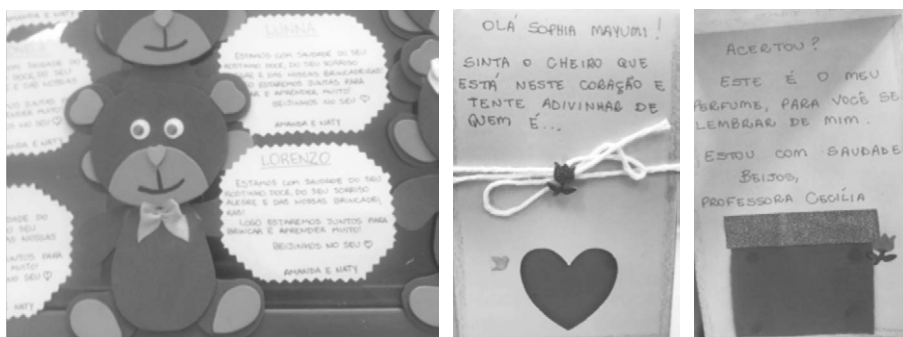 LUNNA
ESTAMOS COM SAUDADE DO SEU
ROSTINHO DOCE, DO SEU SORRISO
E DAS NOSSAS BRINCADEIRAS!
ESTAREMOS JUNTAS PARA
E APRENDER MUITO!
BEIJINHOS NO SEU ♡
AMANDA E NATY
LORENZO
ESTAMOS COM SAUDADE DO SEU
ROSTINHO DOCE, DO SEU SORRISO
ALEGRE E DAS NOSSAS BRINCADEI
RAS!
LOGO ESTAREMOS JUNTOS PARA
BRINCAR E APRENDER MUITO!
BEIJINHOS NO SEU ♡
AMANDA E NATY
OLÁ SOPHIA MAYUMI!
SINTA O CHEIRO QUE
ESTÁ NESTE CORAÇÃO E
TENTE ADIVINHAR DE
QUEM É...
ACERTOU?
ESTE É O MEU
PERFUME, PARA VOCÊ SE
LEMBRAR DE MIM.
ESTOU COM SAUDADE
BEIJOS,
PROFESSORA CECÍLIA